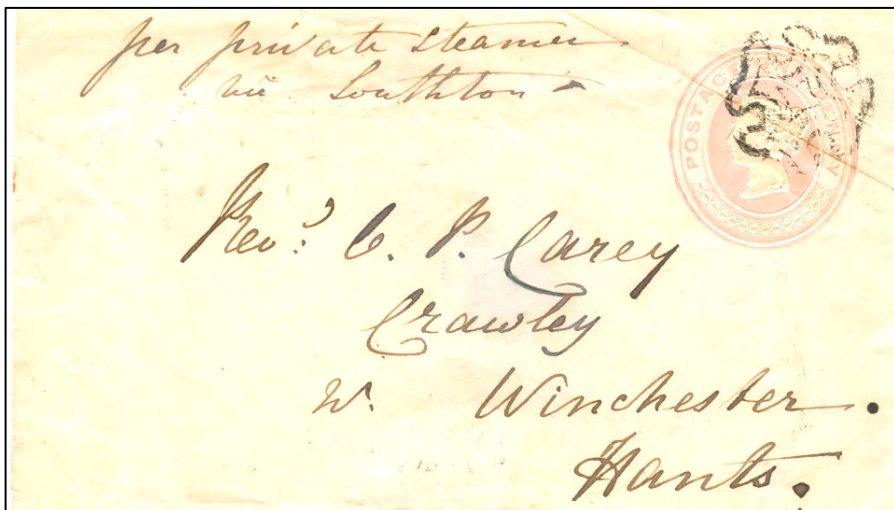 per private steamer
via Southton
POSTAG
NNY
Revd. C. P. Carey
Crawley
nr. Winchester.
Hants.